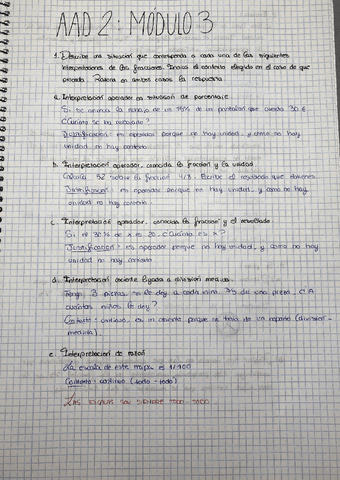 AAD 2: MÓDULO 3
1. Describe una situación que corresponda a cada una de las siguientes
interpretaciones de las fracciones. Indica el contexto elegido en el caso de que
proceda. Razona en ambos casos la respuesta
a. Interpretación operador en situación de porcentaje
Si se anuncia la rebaja de un 15% de un pantalón que cuesta 30 €
¿Cuánto se ha rebajado?
Justificación: es operador porque no hay unidad, y como no hay
unidad no hay contexto
b. Interpretación operador, conocida la fracción y la unidad
Calcula 32 sobre la fracción 4/8. Escribe el resultado que obtienes
Justificación: es operador porque no hay unidad, y como no hay
unidad no hay contexto.
c. Interpretación operador, conocida la fracción y el resultado
Si el 30% de x es 20. ¿Cuánto es x?
Justificación: es operador porque no hay unidad, y como no hay
unidad no hay contexto
d. Interpretación cociente ligada a división medida.
Tengo 3 pizzas, si le doy a cada niño 3/5 de una pizza. ¿A
cuántos niños le doy?
Contexto: continuo, es un cociente porque se trata de un reparto (división-
medida).
e. Interpretación de razón
La escala de este mapa es 1/100
Contexto: continuo (todo-todo)
LAS ESCALAS SON SIEMPRE TODO-TODO